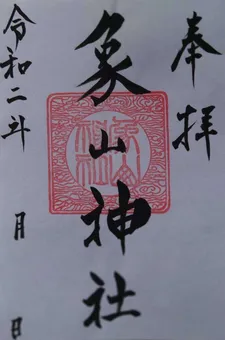 奉拝
象山神社
令和二年 月 日